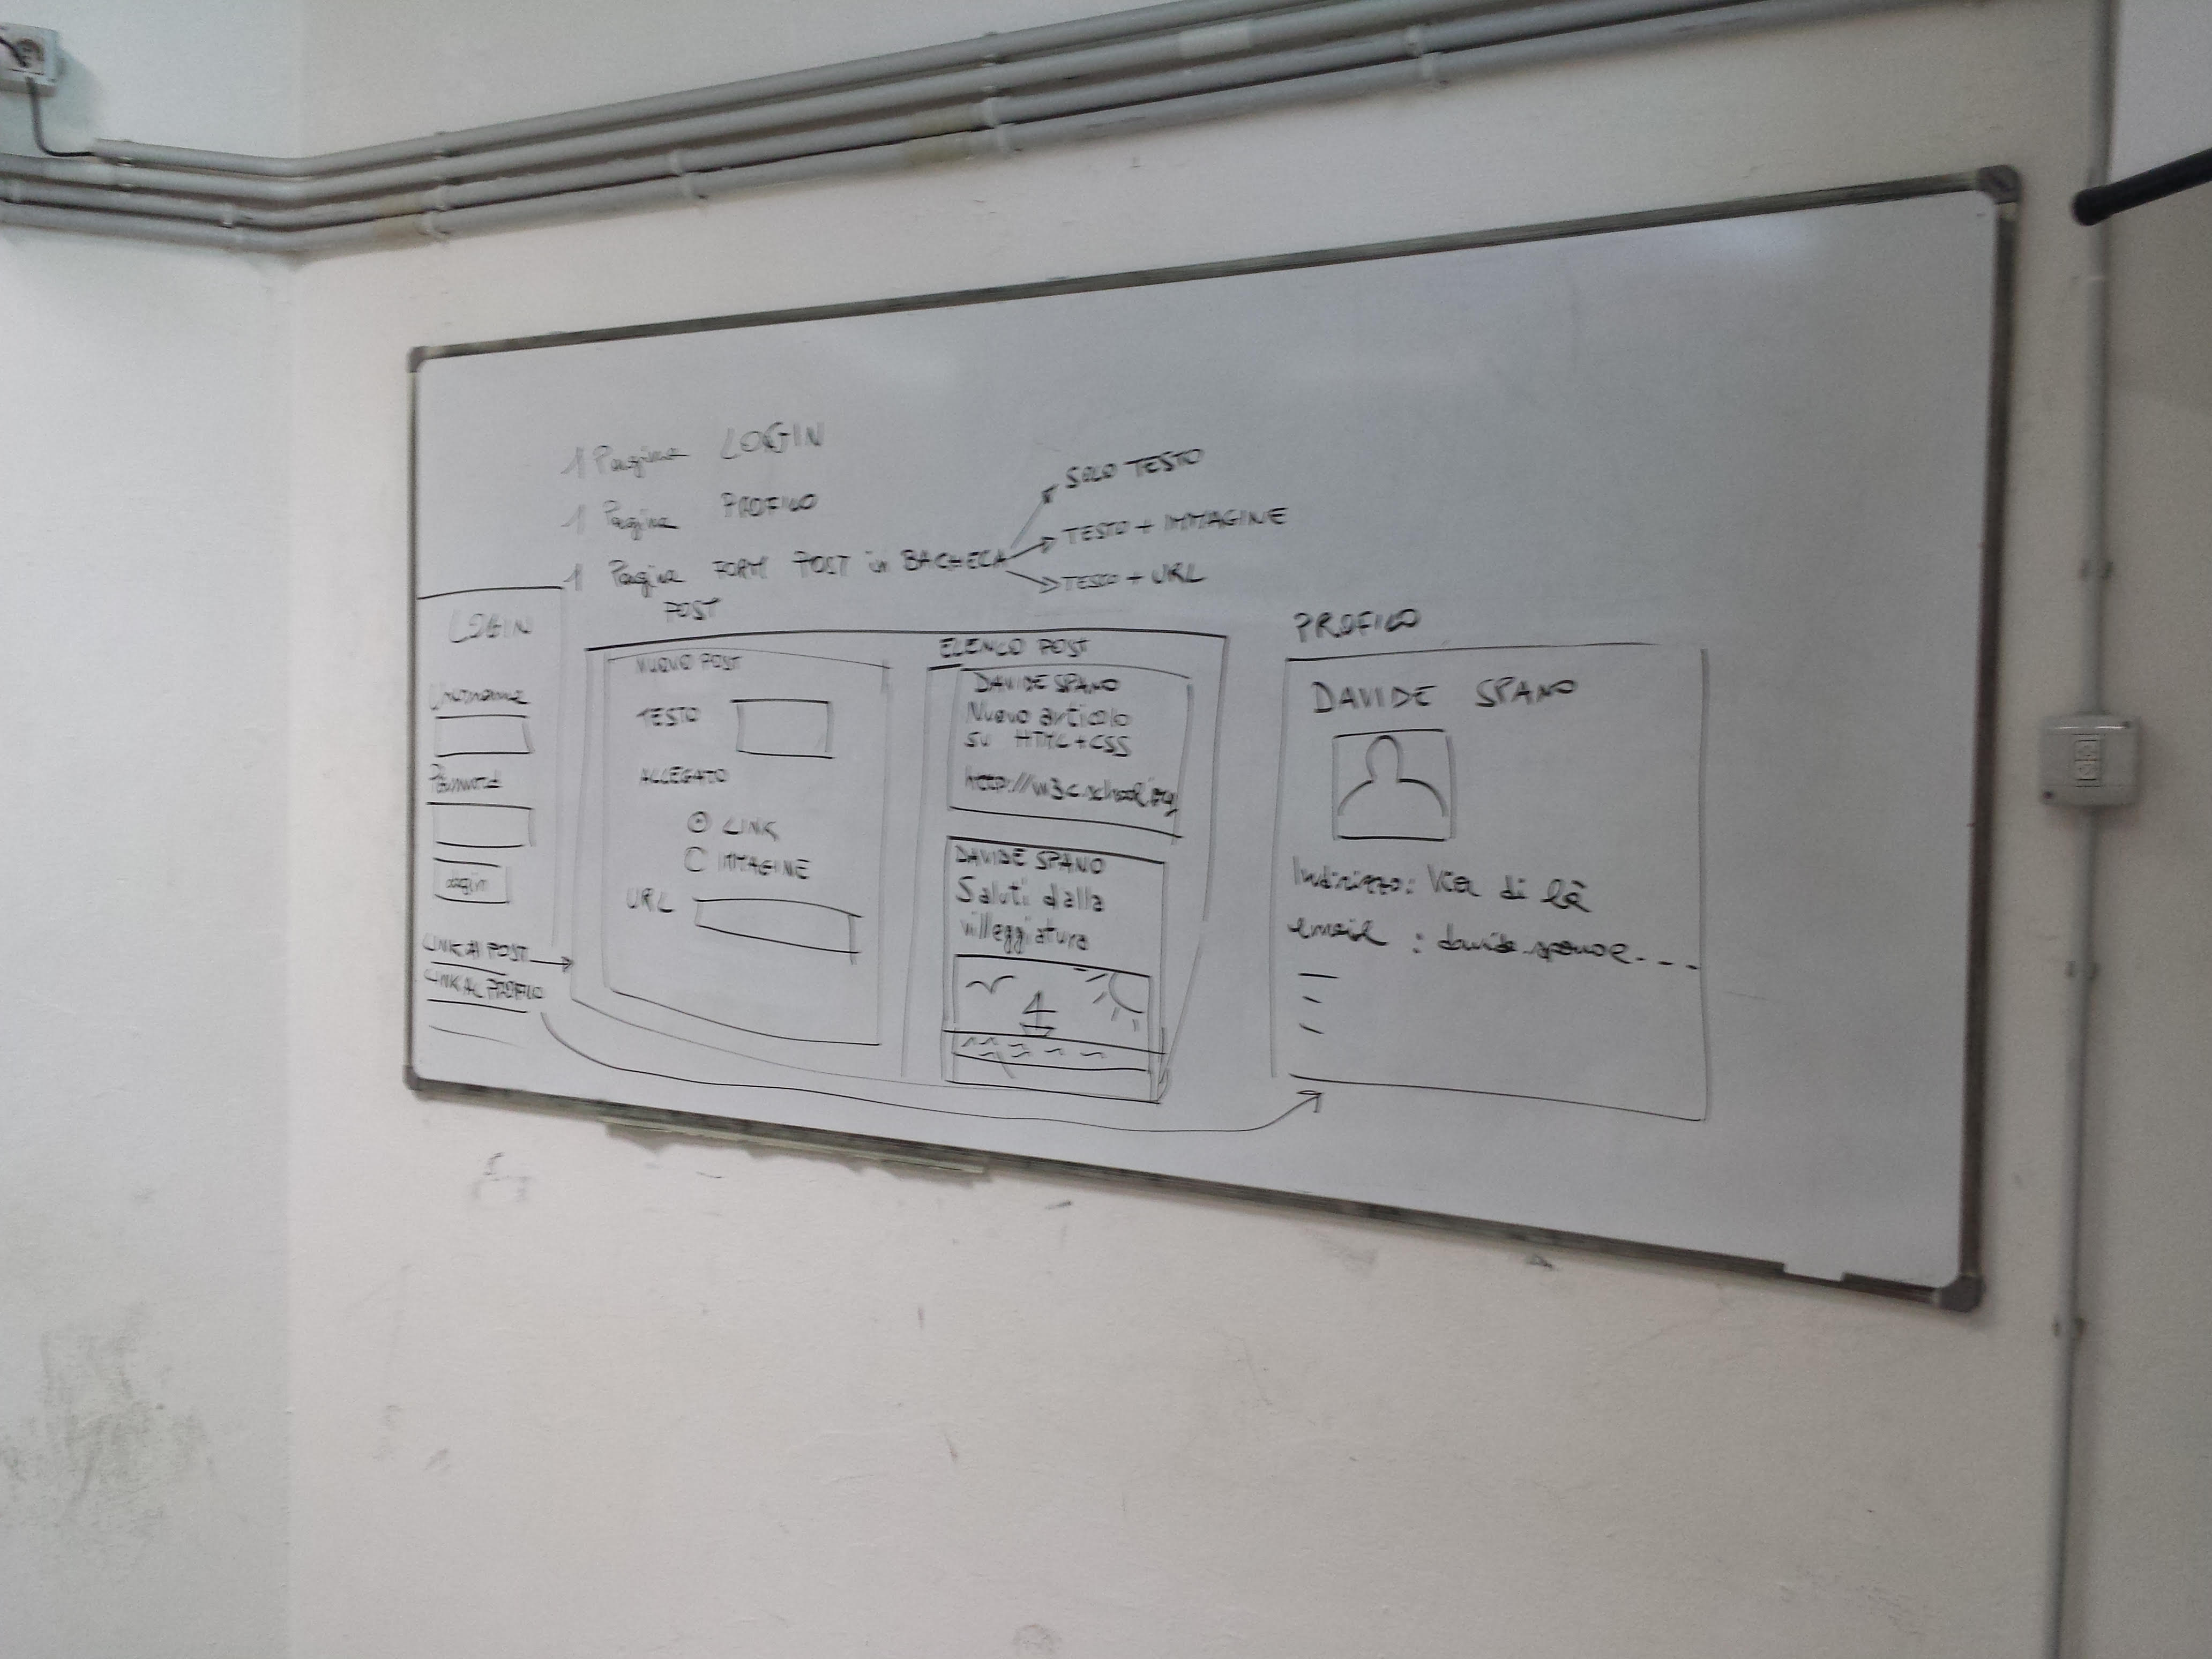 1 Pagina LOGIN
1 Pagina PROFILO
1 Pagina FORM POST in BACHECA
SOLO TESTO
TESTO + IMMAGINE
TESTO + URL
LOGIN
Username
Password
Login
LINK AI POST
LINK AL PROFILO
POST
NUOVO POST
TESTO
ALLEGATO
LINK
IMMAGINE
URL
ELENCO POST
DAVIDE SPANO
Nuovo articolo
su HTML+CSS
http://w3c.school.org
DAVIDE SPANO
Saluti dalla
villeggiatura
PROFILO
DAVIDE SPANO
Indirizzo: Via di là
email : davide.spano@---